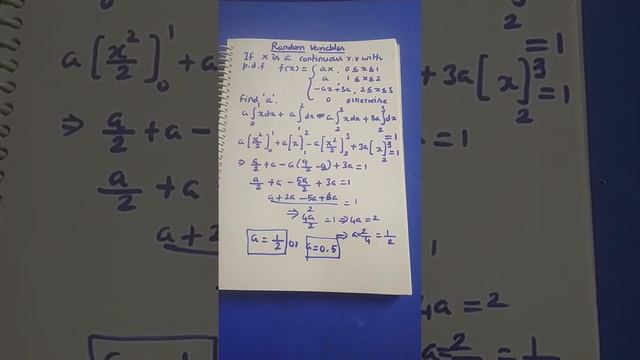 Random Variables
If x is a continuous r.v with
p.d.f f(x) = { ax, 0≤x≤1
a, 1≤x≤2
-ax+3a, 2≤x≤3
0 otherwise
Find 'a'.
a∫₀¹xdx + a∫₁²dx - a∫₂³xdx + 3a∫₂³dx = 1
a[x²/2]₀¹ + a[x]₁² - a[x²/2]₂³ + 3a[x]₂³ = 1
⇒ a/2 + a - a(9/2 - 4/2) + 3a = 1
a/2 + a - 5a/2 + 3a = 1
(a + 2a - 5a + 6a)/2 = 1
⇒ 4a/2 = 1 ⇒ 4a = 2
⇒ a = 2/4 = 1/2
a = 1/2 or a = 0.5